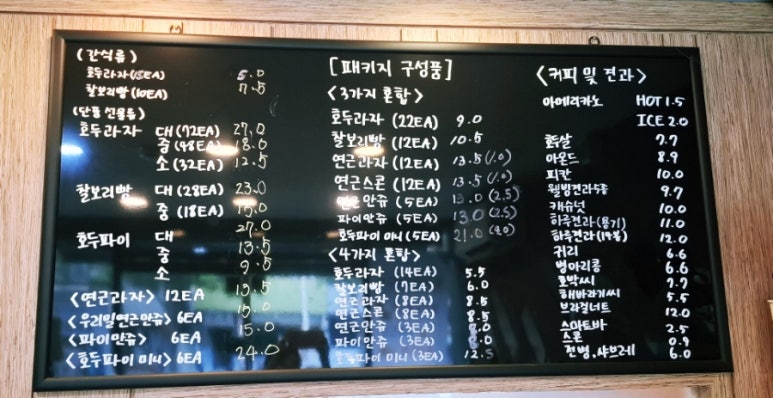 (간식류)
호두과자(15EA) 5.0
찰보리빵(10EA) 7.5
(단품 선물용)
호두과자 대(72EA) 27.0
중(48EA) 18.0
소(32EA) 12.5
찰보리빵 대(28EA) 23.0
중(18EA) 15.0
호두파이 대 27.0
중 13.5
소 9.5
<연근과자> 12EA 13.5
<우리밀연근만쥬> 6EA 15.0
<파이만쥬> 6EA 15.0
<호두파이 미니> 6EA 24.0
[패키지 구성품]
<3가지 혼합>
호두과자 (22EA) 9.0
찰보리빵 (12EA) 10.5
연근과자 (12EA) 13.5 (1.0)
연근스콘 (12EA) 13.5 (1.0)
연근만쥬 (5EA) 13.0 (2.5)
파이만쥬 (5EA) 13.0 (2.5)
호두파이 미니 (5EA) 21.0
<4가지 혼합>
호두과자 (14EA) 5.5
찰보리빵 (7EA) 6.0
연근과자 (8EA) 8.5
연근스콘 (8EA) 8.5
연근만쥬 (3EA) 8.0
파이만쥬 (3EA) 8.0
호두파이 미니 (3EA) 12.5
<커피 및 견과>
아메리카노 HOT 1.5
ICE 2.0
호두살 7.7
아몬드 8.9
피칸 10.0
웰빙견과5종 9.7
캐슈넛 10.0
하루견과(용기) 11.0
하루견과 12.0
귀리 6.6
병아리콩 6.6
호박씨 7.7
해바라기씨 5.5
브라질너트 12.0
스마트바 2.5
스콘 0.9
전병,샤브레 6.0